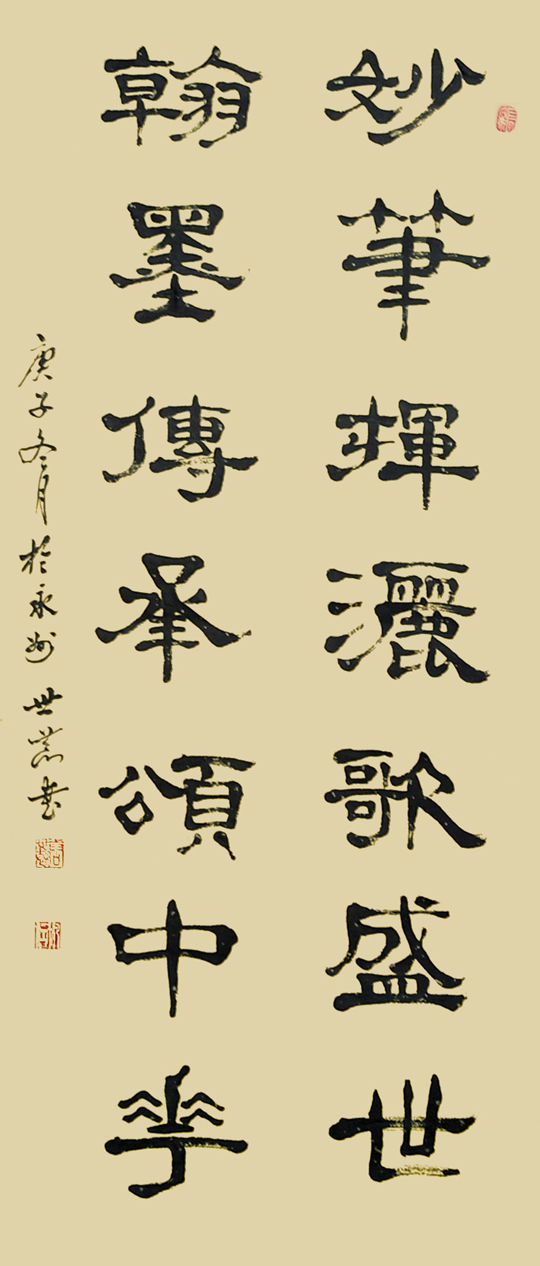 妙筆輝灑歌盛世
翰墨傳承頌中華
庚子冬月於永州世